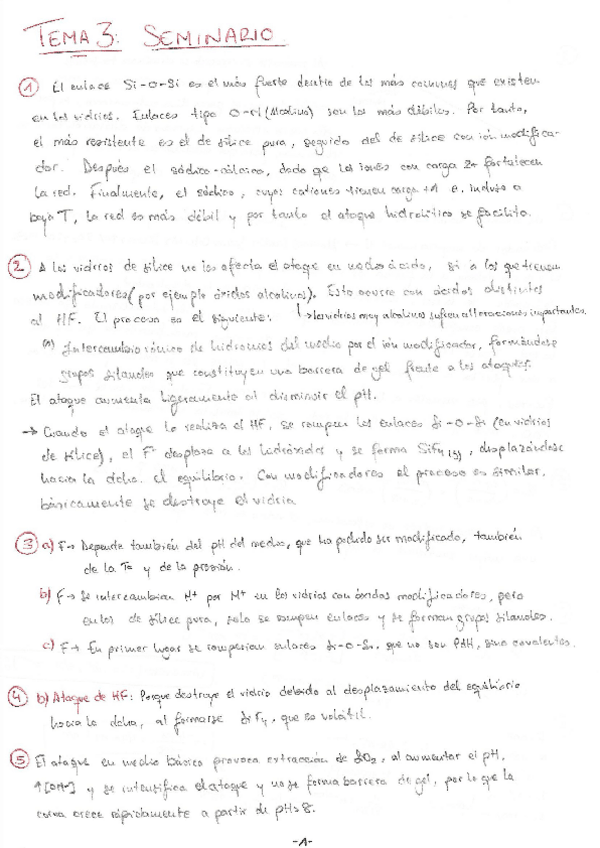 TEMA 3: SEMINARIO
① El enlace Si-O-Si es el más fuerte dentro de los más comunes que existen
en los vidrios. Enlaces tipo O-M (Alcalino) son los más débiles. Por tanto,
el más resistente es el de sílice pura, seguido del de sílice con ión modifica-
dor. Después el sódico-cálcico, dado que los iones con carga 2+ fortalecen
la red. Finalmente, el sódico, cuyos cationes tienen carga +1 e, incluso a
baja T, la red es más débil y por tanto el ataque hidrolítico se facilita.
② A los vidrios de sílice no les afecta el ataque en medio ácido, sí a los que tienen
modificadores (por ejemplo óxidos alcalinos). Esto ocurre con ácidos distintos
al HF. El proceso es el siguiente: ↳ los vidrios muy alcalinos sufren alteraciones importantes.
(a) Intercambio iónico de hidrones del medio por el ión modificador, formándose
grupos silanoles que constituyen una barrera de gel frente a los ataques.
El ataque aumenta ligeramente al disminuir el pH.
→ Cuando el ataque lo realiza el HF, se rompen los enlaces Si-O-Si (en vidrios
de sílice), el F⁻ desplaza a los hidróxidos y se forma SiF₄(g), desplazándose
hacia la dcha. el equilibrio. Con modificadores el proceso es similar,
básicamente se destruye el vidrio
③ a) F→ Depende también del pH del medio, que ha podido ser modificado, también
de la Tª y de la presión.
b) F→ Se intercambian H⁺ por M⁺ en los vidrios con óxidos modificadores, pero
en los de sílice pura, solo se rompen enlaces y se forman grupos silanoles.
c) F→ En primer lugar se romperían enlaces Si-O-Si, que no son PdH, sino covalentes.
④ b) Ataque de HF: Porque destruye el vidrio debido al desplazamiento del equilibrio
hacia la dcha, al formarse SiF₄, que es volátil.
⑤ El ataque en medio básico provoca extracción de SiO₂, al aumentar el pH,
↑[OH⁻] y se intensifica el ataque y no se forma barrera de gel, por lo que la
curva crece rápidamente a partir de pH>8.
-1-